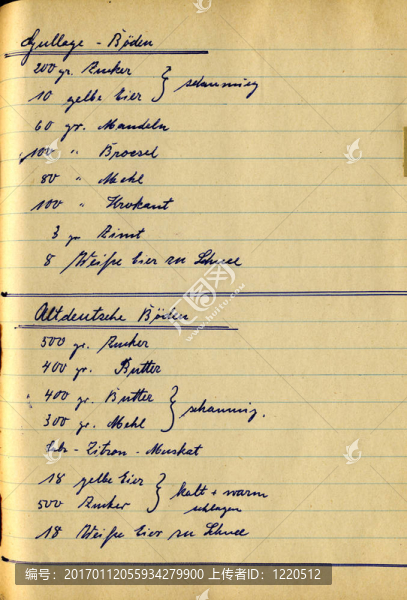 Grillage - Böden
200 gr. Zucker } schaumig
10 gelbe Eier
60 gr. Mandeln
100 " Broesel
80 " Mehl
100 " Krokant
3 gr Zimt
8 Weiße Eier zu Schnee
Altdeutsche Böden
500 gr. Zucker
400 gr. Butter
400 gr. Butter } schaumig.
300 gr. Mehl
Salz - Zitron - Muskat
18 gelbe Eier } kalt + warm
500 Zucker schlagen
18 Weiße Eier zu Schnee
编号：20170112055934279900 上传者ID：1220512